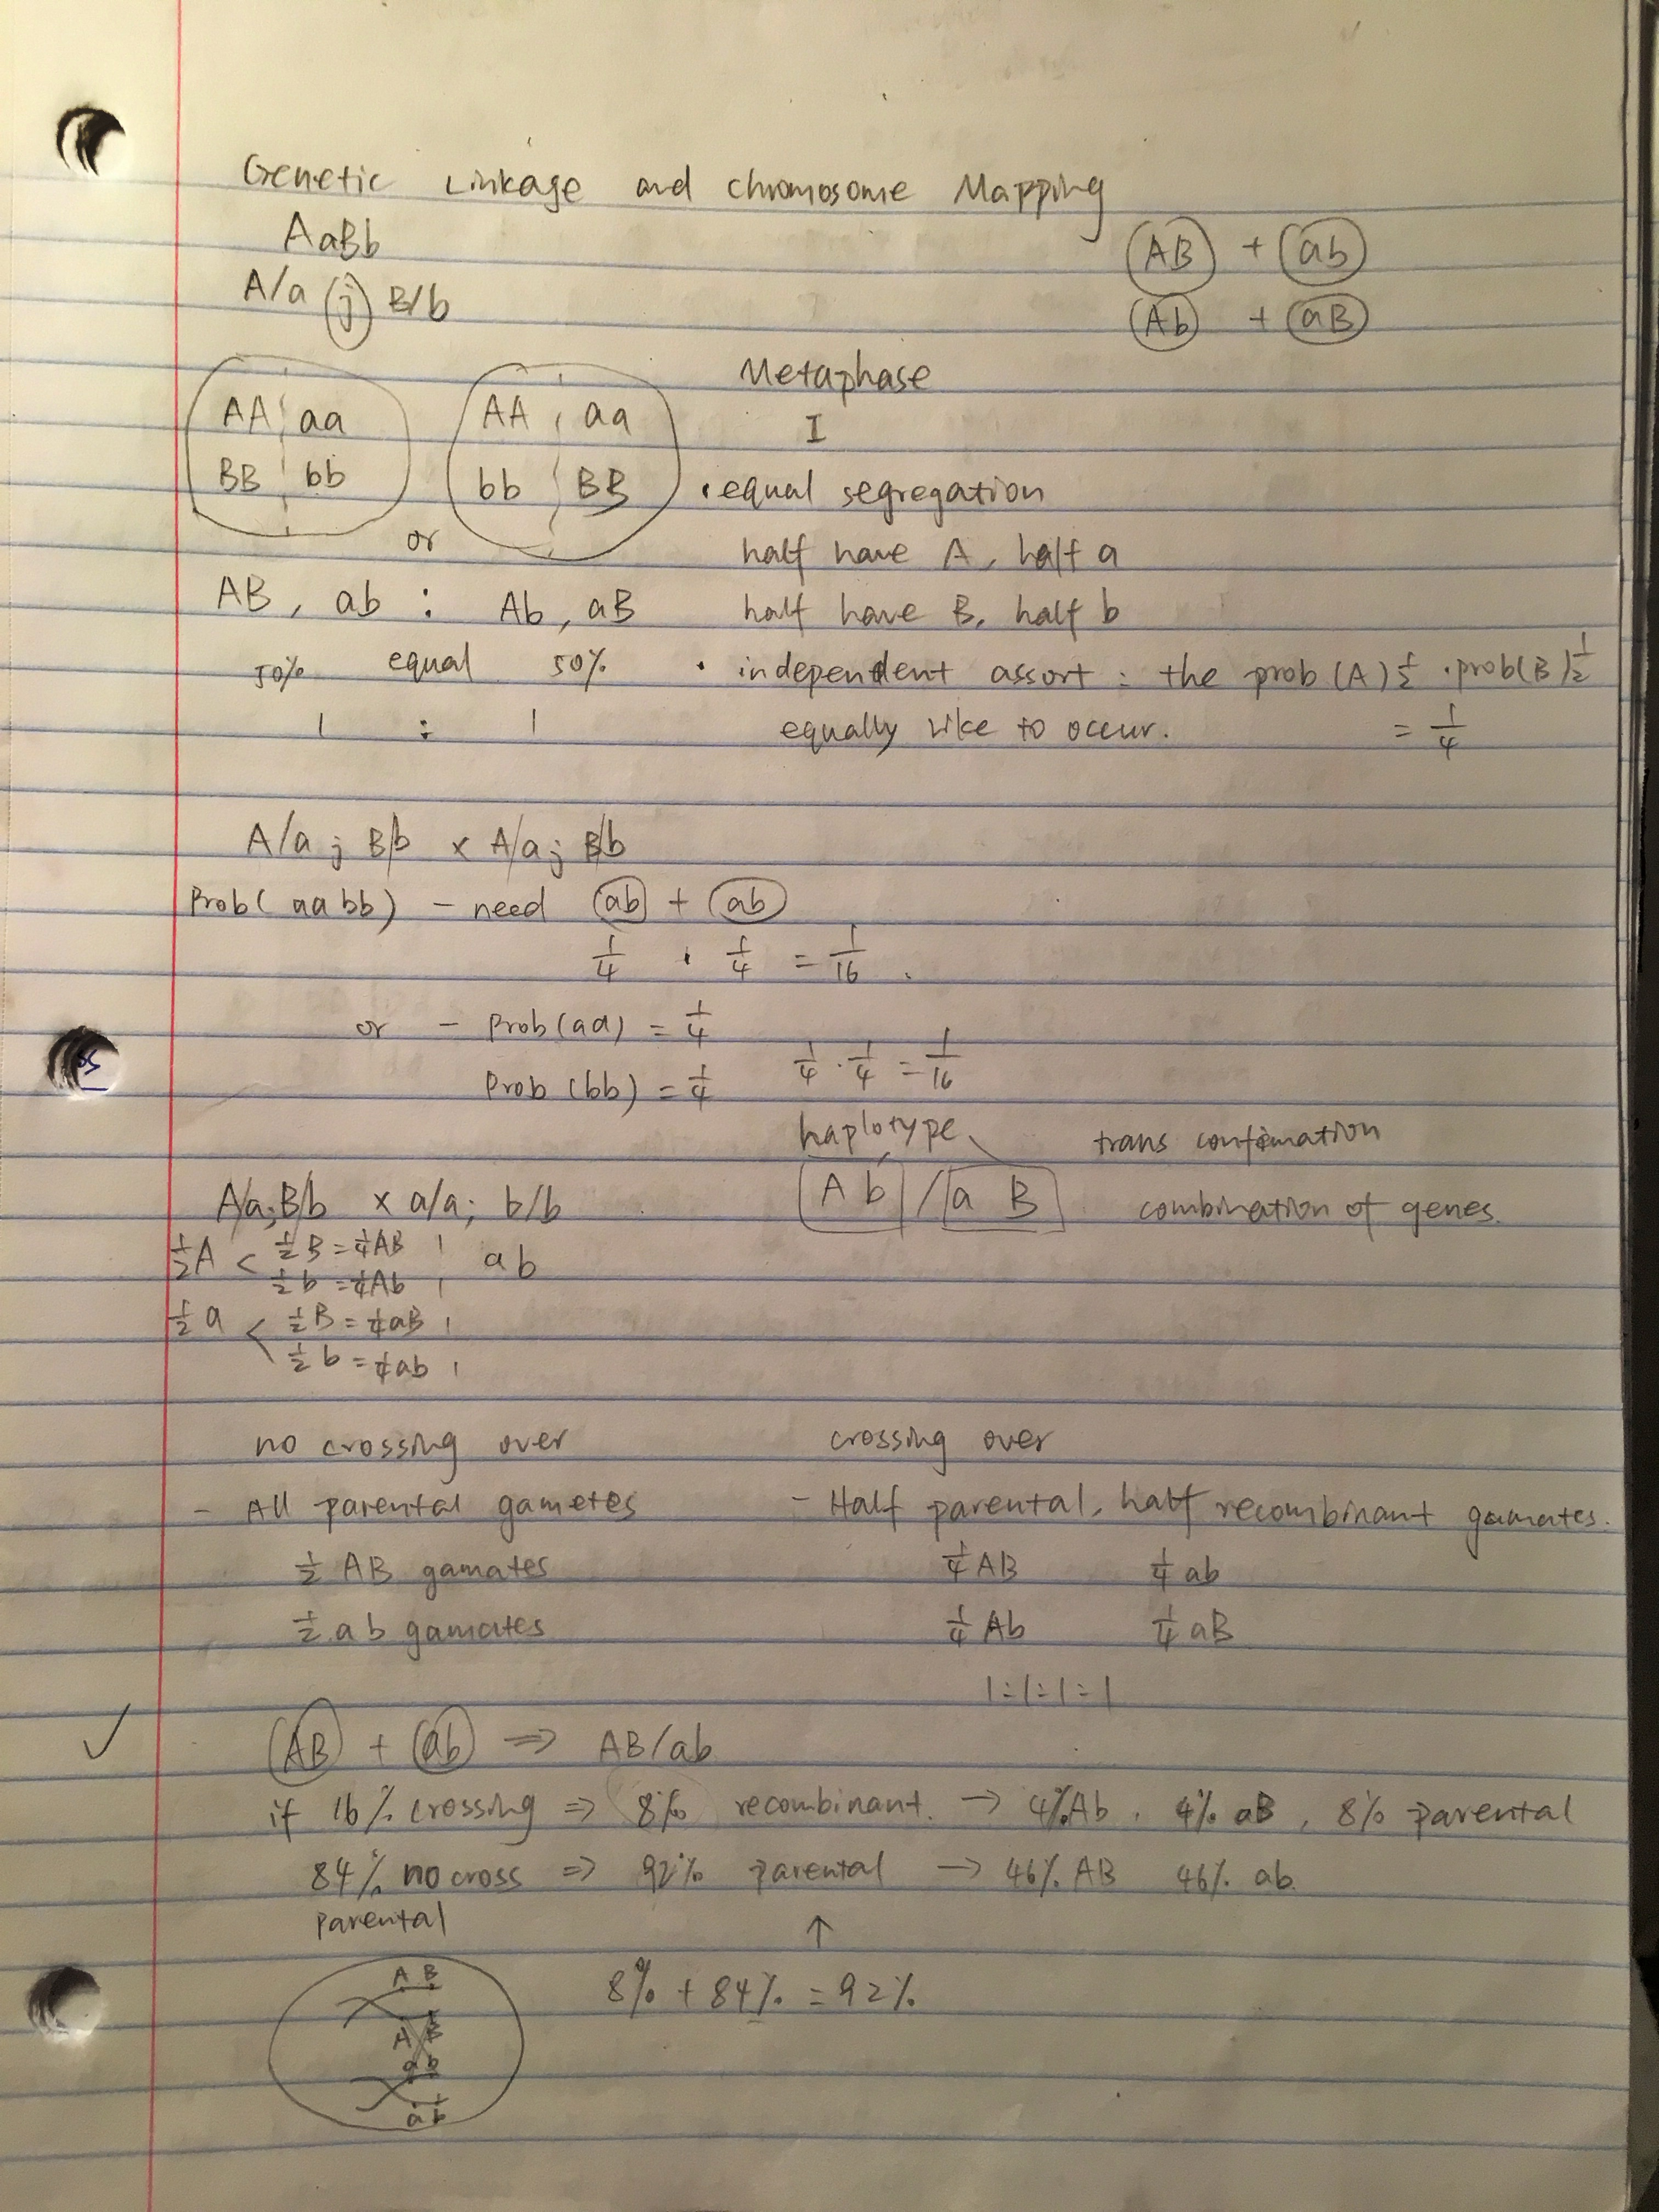 Genetic Linkage and chromosome Mapping
AaBb
AB + ab
A/a ; B/b
Ab + aB
Metaphase
AA aa AA aa
I
BB bb bb BB
· equal segregation
or
half have A, half a
AB, ab : Ab, aB
half have B, half b
50% equal 50%
· independent assort : the prob (A) 1/2 · prob(B) 1/2
1 : 1
equally like to occur. = 1/4
A/a ; B/b x A/a ; B/b
Prob( aabb) - need ab + ab
1/4 · 1/4 = 1/16
or - Prob(aa) = 1/4
Prob (bb) = 1/4
1/4 · 1/4 = 1/16
haplotype
trans confimation
A/a; B/b x a/a; b/b
A b / a B
combination of genes.
1/2 A < 1/2 B = 1/4 AB 1
1/2 b = 1/4 Ab 1
ab
1/2 a < 1/2 B = 1/4 aB 1
1/2 b = 1/4 ab 1
no crossing over
crossing over
- All parental gametes
- Half parental, half recombinant gamates.
1/2 AB gamates
1/4 AB 1/4 ab
1/2 ab gamates
1/4 Ab 1/4 aB
1:1:1:1
✓ AB + ab => AB/ab
if 16% crossing => 8% recombinant. → 4% Ab, 4% aB, 8% parental
84% no cross => 92% parental → 46% AB 46% ab.
parental
↑
8% + 84% = 92%
A B
A B
a b
a b